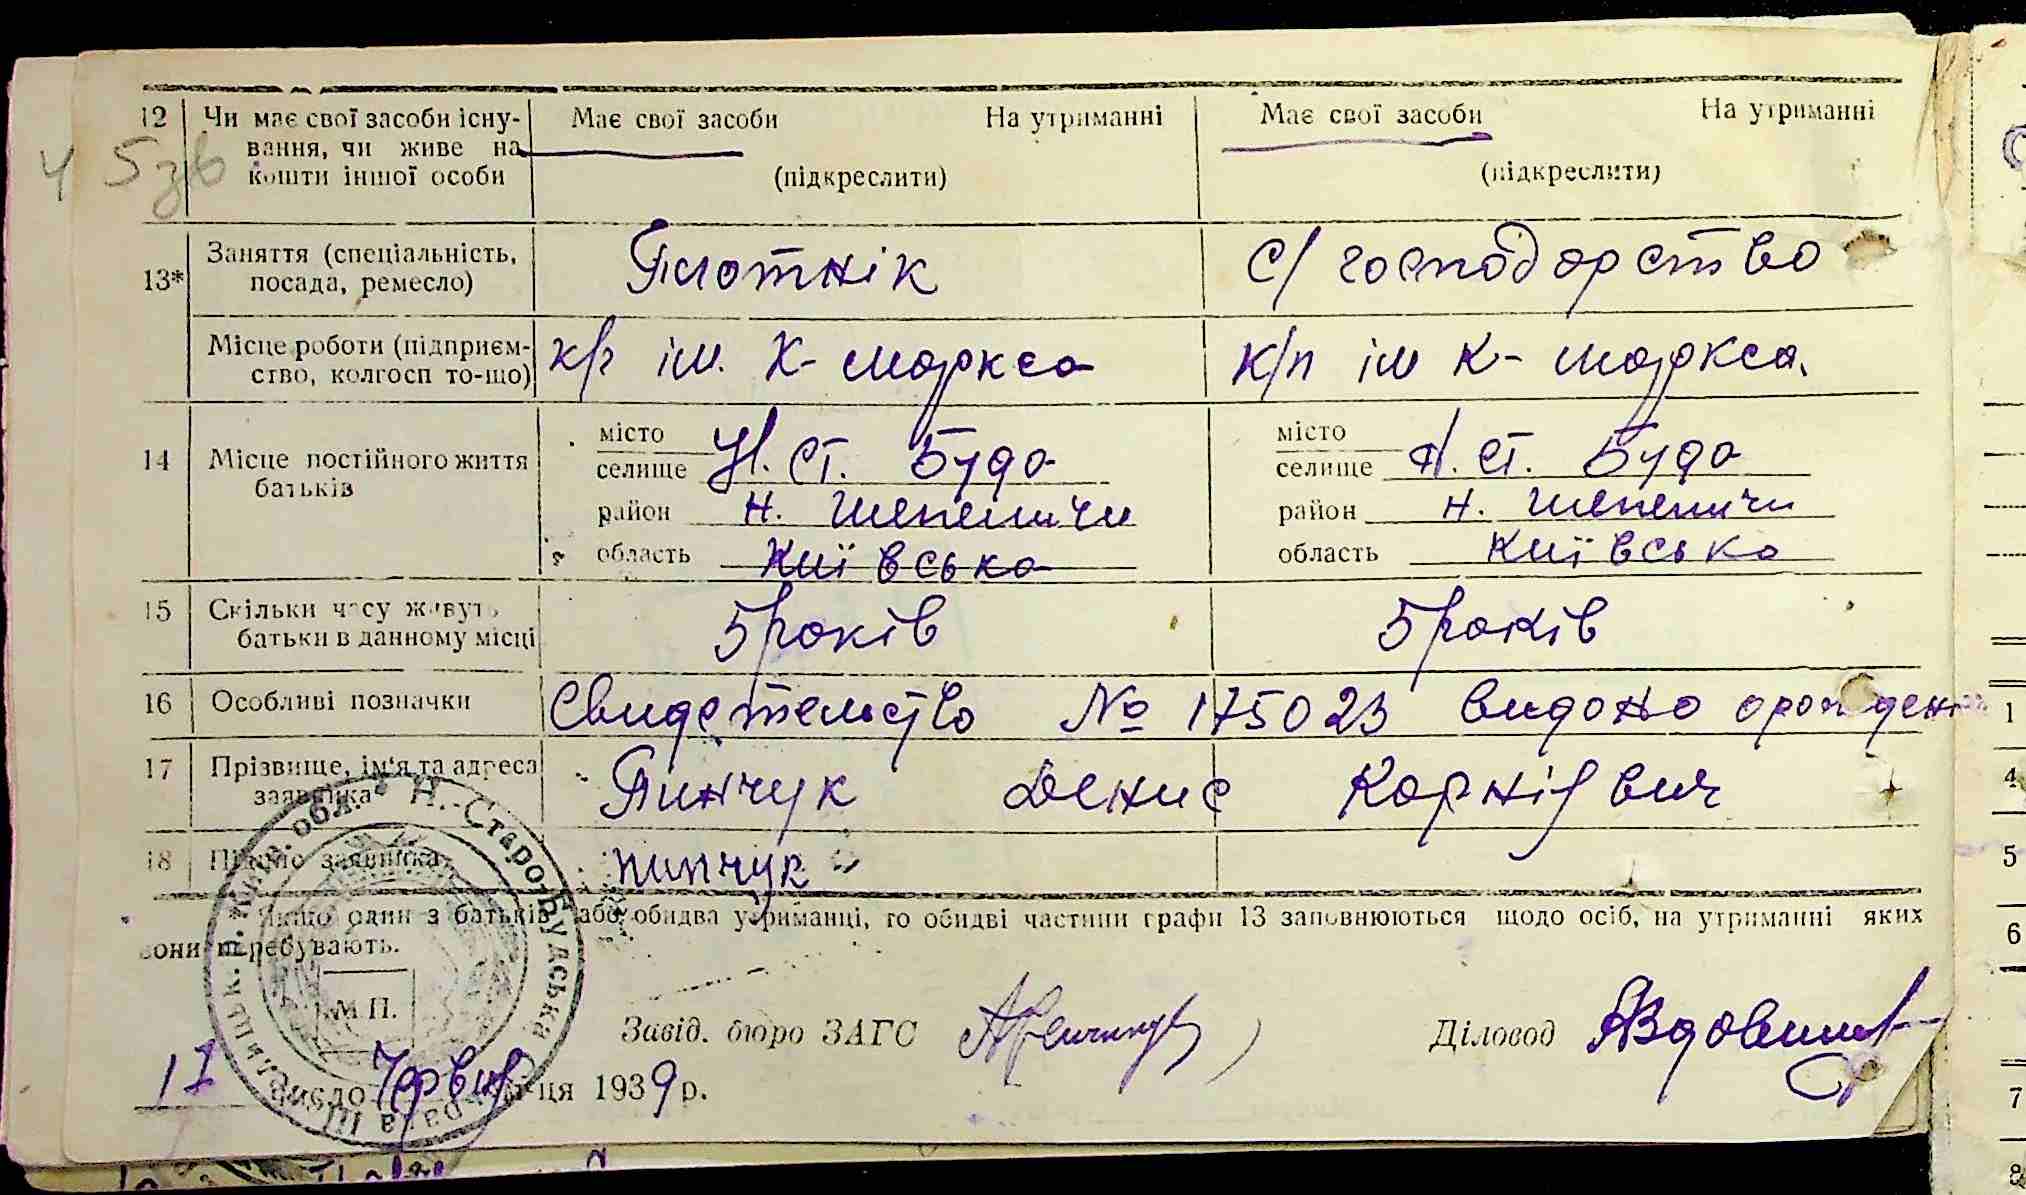 12 Чи має свої засоби існу- Має свої засоби На утриманні Має свої засоби На утриманні
вання, чи живе на
кошти іншої особи (підкреслити) (підкреслити)
13* Заняття (спеціальність, Плотнік с/господарство
посада, ремесло)
Місце роботи (підприєм- к/г ім. К-Маркса к/п ім К-Маркса.
ство, колгосп то-що)
місто місто
14 Місце постійного життя селище Н. Ст. Буда селище Н. Ст. Буда
батьків район Н. Шепеличи район Н. Шепеличи
область Київська область Київська
15 Скільки часу живуть 5 років 5 років
батьки в данному місці
16 Особливі позначки Свидетельство № 175023 видано
17 Прізвище, ім'я та адреса Пинчук Денис Корнієвич
заявника
18 Підпис заявника Пинчук
Якщо один з батьків або обидва утриманці, то обидві частини графи 13 заповнюються щодо осіб, на утриманні яких
вони перебувають.
М П.
Завід. бюро ЗАГС Діловод
17 Червня місяця 1939 р.